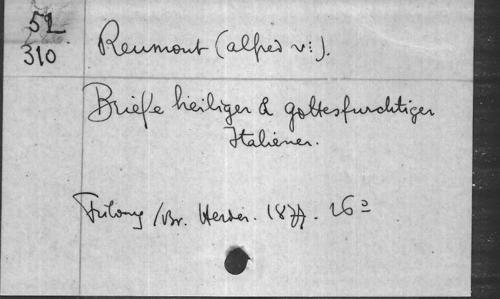 52
310
Reumont (Alfred v:).
Briefe heiliger & gottesfurchtiger
Italiener.
Friburg /Br. Herder. 1877. 16º